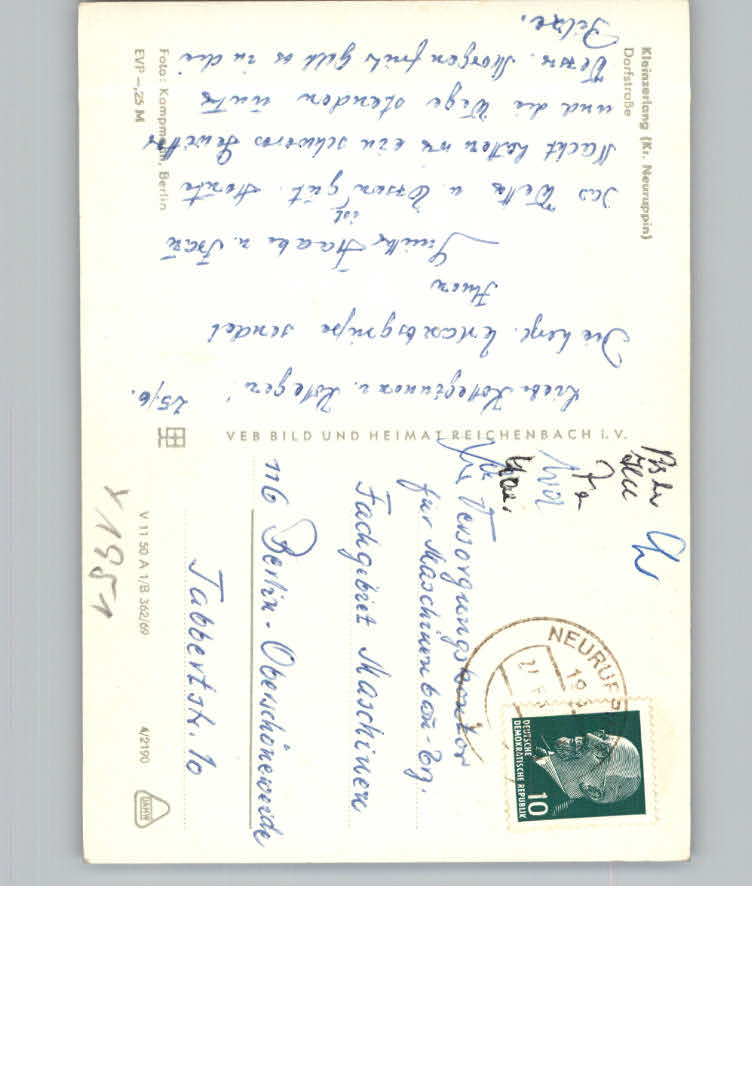 Kleinzerlang (Kr. Neuruppin)
Dorfstraße
25/6.
Liebe Kolleginnen u. Kollegen!
Die herzl. Urlaubsgrüße sendet
Ihnen
Familie Haake u. Frau
Das Wetter u. Essen ist gut. Heute
Nacht hatten wir ein schweres Gewitter
und die Wege standen unter
Wasser. Morgen früh geht es in die
Pilze.
Foto: Kampmann, Berlin
EVP –,25 M
VEB BILD UND HEIMAT REICHENBACH i. V.
Versorgungskontor
für Maschinenbau-Erz.
Fachgebiet Maschinen
116 Berlin-Oberschöneweide
Tabbertstr. 10
NEURUPPIN
DEUTSCHE
DEMOKRATISCHE REPUBLIK
10
V 11 50 A 1/B 362/69
4/2190
DAHW
Y 1951